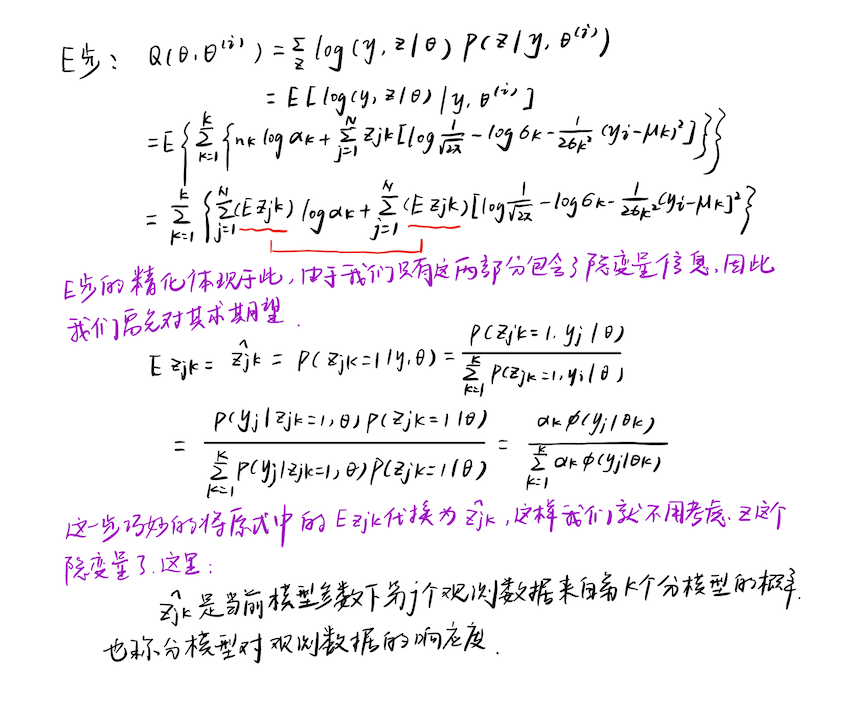 E步: Q(θ,θ^(i)) = Σ_z log(y,z|θ) P(z|y,θ^(i))
= E[log(y,z|θ)|y,θ^(i)]
= E{Σ_{k=1}^{K}{n_k log α_k + Σ_{j=1}^{N} z_jk[log 1/√2π - log σ_k - 1/2σ_k² (y_j-μ_k)²]}}
= Σ_{k=1}^{K}{Σ_{j=1}^{N}(E z_jk) log α_k + Σ_{j=1}^{N}(E z_jk)[log 1/√2π - log σ_k - 1/2σ_k² (y_j-μ_k]²}
E步的精化体现于此,由于我们只有这两部分包含了隐变量信息,因此
我们需先对其求期望.
E z_jk = ẑ_jk = P(z_jk=1|y,θ) = P(z_jk=1,y_j|θ) / Σ_{k=1}^{K} P(z_jk=1,y_j|θ)
= P(y_j|z_jk=1,θ)P(z_jk=1|θ) / Σ_{k=1}^{K} P(y_j|z_jk=1,θ)P(z_jk=1|θ) = α_k φ(y_j|θ_k) / Σ_{k=1}^{K} α_k φ(y_j|θ_k)
这一步巧妙的将原式中的E z_jk代换为ẑ_jk,这样我们就不用考虑z这个
隐变量了.这里:
ẑ_jk是当前模型参数下第j个观测数据来自第k个分模型的概率.
也称分模型对观测数据的响应度.